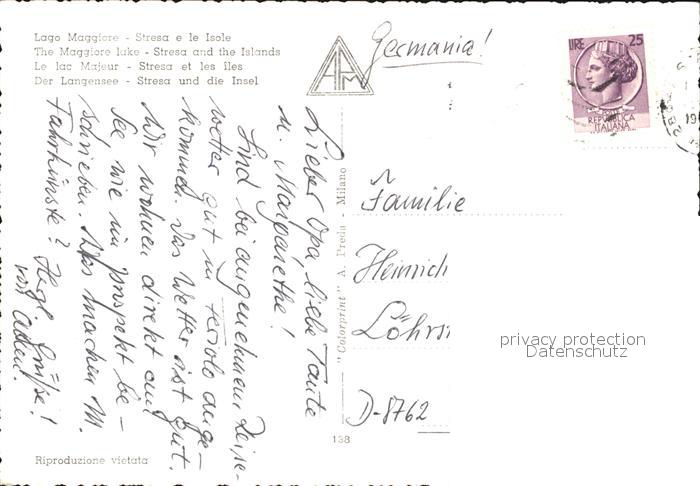 Lago Maggiore - Stresa e le Isole
The Maggiore lake - Stresa and the Islands
Le lac Majeur - Stresa et les îles
Der Langensee - Stresa und die Insel
AM
Germania!
LIRE 25
REPUBBLICA
ITALIANA
Lieber Opa, liebe Tante
u. Margarethe!
Sind bei angenehmem Reise-
wetter gut in ange-
kommen. Das Wetter ist gut.
Wir wohnen direkt am
See wie im Prospekt be-
schrieben. Was machen M.
Fahrkünste? Herzl. Grüße!
von allen.
"Colorprint" A. Preda - Milano
Familie
Heinrich
Löhrs
D-8762
privacy protection
Datenschutz
138
Riproduzione vietata